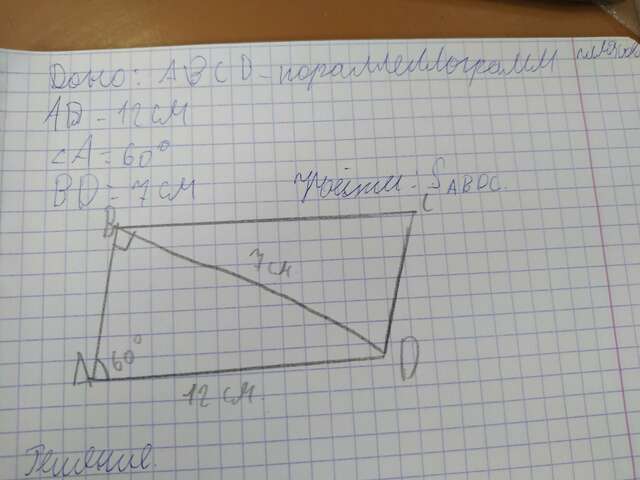 Дано: ABCD - пораллеллограмм
AD - 12 см
∠A = 60°
BD = 7 см Найти: S ABDC.
B
C
7 см
60°
A
D
12 см
Решение.